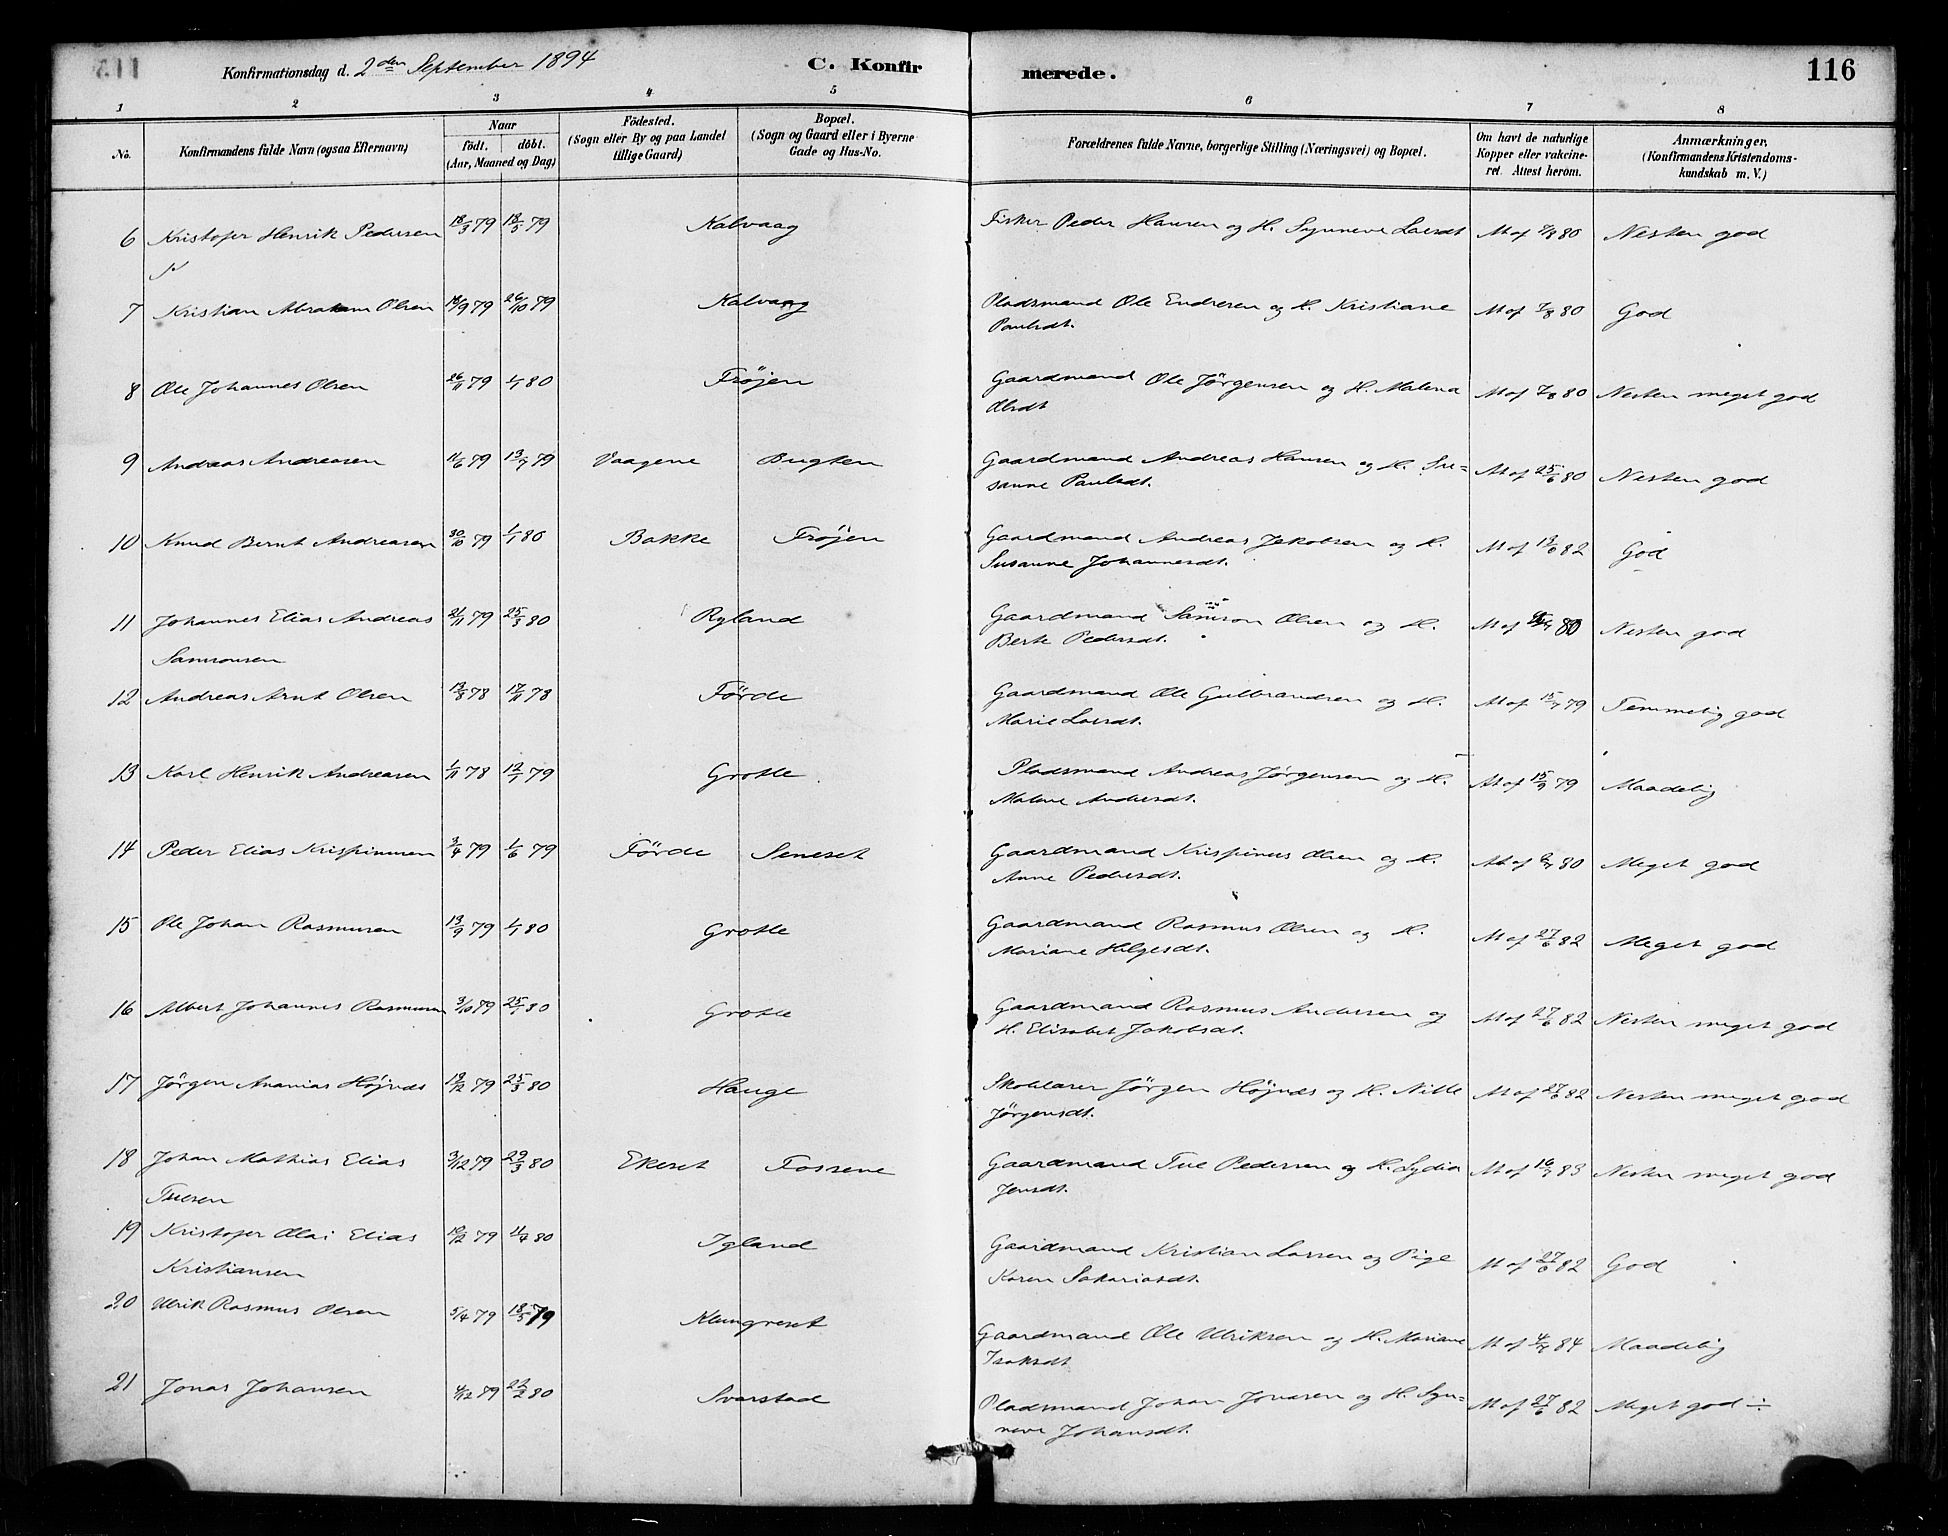 Konfirmationsdag d. 2den September 1894 C. Konfirmerede. 116
1 2 3 4 5 6 7 8
No. Konfirmandens fulde Navn (ogsaa Efternavn) Naar födt. döbt. (Aar, Maaned og Dag) Födested. (Sogn eller By og paa Landet tillige Gaard) Bopæl. (Sogn og Gaard eller i Byerne Gade og Hus-No. Forældrenes fulde Navne, borgerlige Stilling (Næringsvei) og Bopæl. Om havt de naturlige Kopper eller vakcineret. Attest herom. Anmærkninger. (Konfirmandens Kristendomskundskab m. V.)
6 Kristofer Henrik Pedersen 18/3 79 18/5 79 Kalvaag Fisker Peder Hansen og H. Synneve Larsdt At af 7/8 80 Nesten god
7 Kristian Abraham Olsen 18/9 79 26/10 79 Kalvaag Pladsmand Ole Endresen og H. Kristiane
Paulsdt. At af 7/8 80 God
8 Ole Johannes Olsen 26/11 79 1/1 80 Fröjen Gaardmand Ole Jörgensen og H. Malena
Olsdt At af 7/8 80 Nesten meget god
9 Andreas Andreasen 11/6 79 13/7 79 Vaagene Bugten Gaardmand Andreas Hansen og H. Su=
sanne Paulsdt. At af 25/6 80 Nesten god
10 Knud Bernt Andreasen 30/10 79 1/1 80 Bakke Fröjen Gaardmand Andreas Jakobsen og H.
Susanne Johannesdt. At af 19/6 82 God
11 Johannes Elias Andreas 21/11 79 25/3 80 Ryland Gaardmand Samson Olsen og H.
Samsonsen Berte Pedersdt. At af 80 Nesten god
12 Andreas Arnt Olsen 13/8 78 17/11 78 Förde Gaardmand Ole Gulbrandsen og H.
Marie Larsdt. At af 15/7 79 Temmelig god
13 Karl Henrik Andreasen 1/11 78 12/1 79 Grotle Pladsmand Andreas Jörgensen og H.
Malene Andersdt. At af 15/9 79 Maadelig
14 Peder Elias Krispinusen 3/4 79 1/6 79 Förde Seneset Gaardmand Krispinus Olsen og H.
Anne Pedersdt. At af 80 Meget god
15 Ole Johan Rasmusen 13/9 79 1/1 80 Grotle Gaardmand Rasmus Olsen og H.
Mariane Helgesdt. At af 27/6 82 Meget god
16 Albert Johannes Rasmusen 3/10 79 25/1 80 Grotle Gaardmand Rasmus Andersen og
H. Elisabet Jakobsdt. At af 27/6 82 Nesten meget god
17 Jörgen Ananias Höjnæs 19/12 79 25/3 80 Hauge Skolelærer Jörgen Höjnæs og H. Nille
Jörgensdt. At af 27/6 82 Nesten meget god
18 Johan Mathias Elias 3/12 79 29/3 80 Ekeset Fossene Gaardmand Tue Pedersen og H. Lydia
Tuesen Jensdt. At af 16/7 83 Nesten meget god
19 Kristofer Olai Elias 10/12 79 11/4 80 Igland Gaardmand Kristian Larsen og Pige
Kristiansen Karen Sakariasdt. At af 27/6 82 God
20 Ulrik Rasmus Olsen 5/4 79 18/5 79 Klungreset Gaardmand Ole Ulriksen og H. Mariane
Isaksdt At af 4/7 84 Maadelig
21 Jonas Johansen 4/12 79 22/2 80 Svarstad Pladsmand Johan Jonasen og H. Syn=
neve Johansdt. At af 27/6 82 Meget god ÷